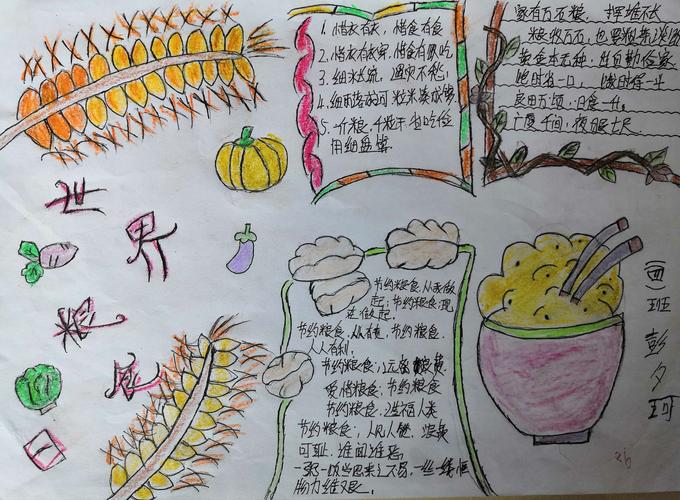 世界
粮食
日
1. 惜衣有衣，惜食有食
2. 惜衣有衣穿，惜食有飯吃
3. 细水长流，遇灾不愁
4. 细雨落成河 粒米凑成箩
5. 一个粮，千粒汗
用细盘算
家有万石粮，挥堆不长
黄金本无种，出自勤俭家
饱时省一口，饿时得一斗
良田万顷，日食一升
广厦千间，夜眠七尺
节约粮食，从我做
起；节约粮食，现
在做起。
节约粮食，人人有责，节约粮食，
人人有利。
节约粮食，远离浪费
爱惜粮食，节约粮食
节约粮食，造福人类
节约粮食，人人夸，浪费
可耻，
一粥一饭当思来之不易，一丝一缕恒
物力维艰。
(四)班 彭夕珂